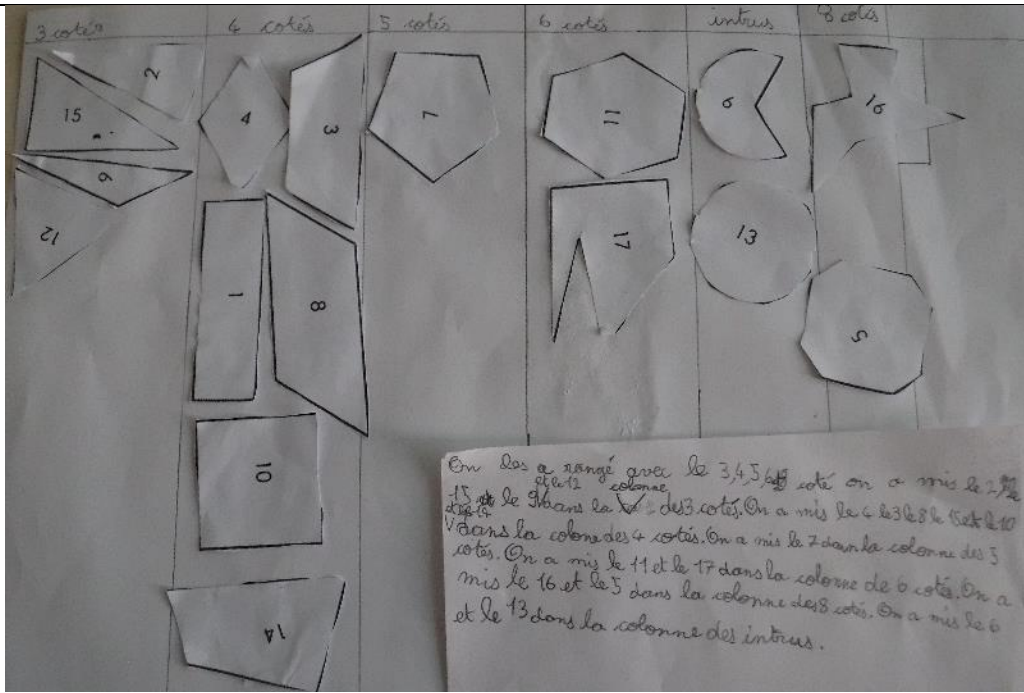 3 cotés 4 cotés 5 cotés 6 cotés intrus 8 cotés
2
15
9
12
4
3
1
8
10
14
7
11
17
6
13
16
5
On les a rangé avec le 3,4,5,6,8 coté on a mis le 2 le
15 et le 9 et le 12 dans la colonne des 3 cotés. On a mis le 4 le 3 le 8 le 1 et le 10
et le 14 dans la colone des 4 cotés. On a mis le 7 dans la colonne des 5
cotés. On a mis le 11 et le 17 dans la colonne de 6 cotés. On a
mis le 16 et le 5 dans la colonne des 8 cotés. On a mis le 6
et le 13 dans la colonne des intrus.